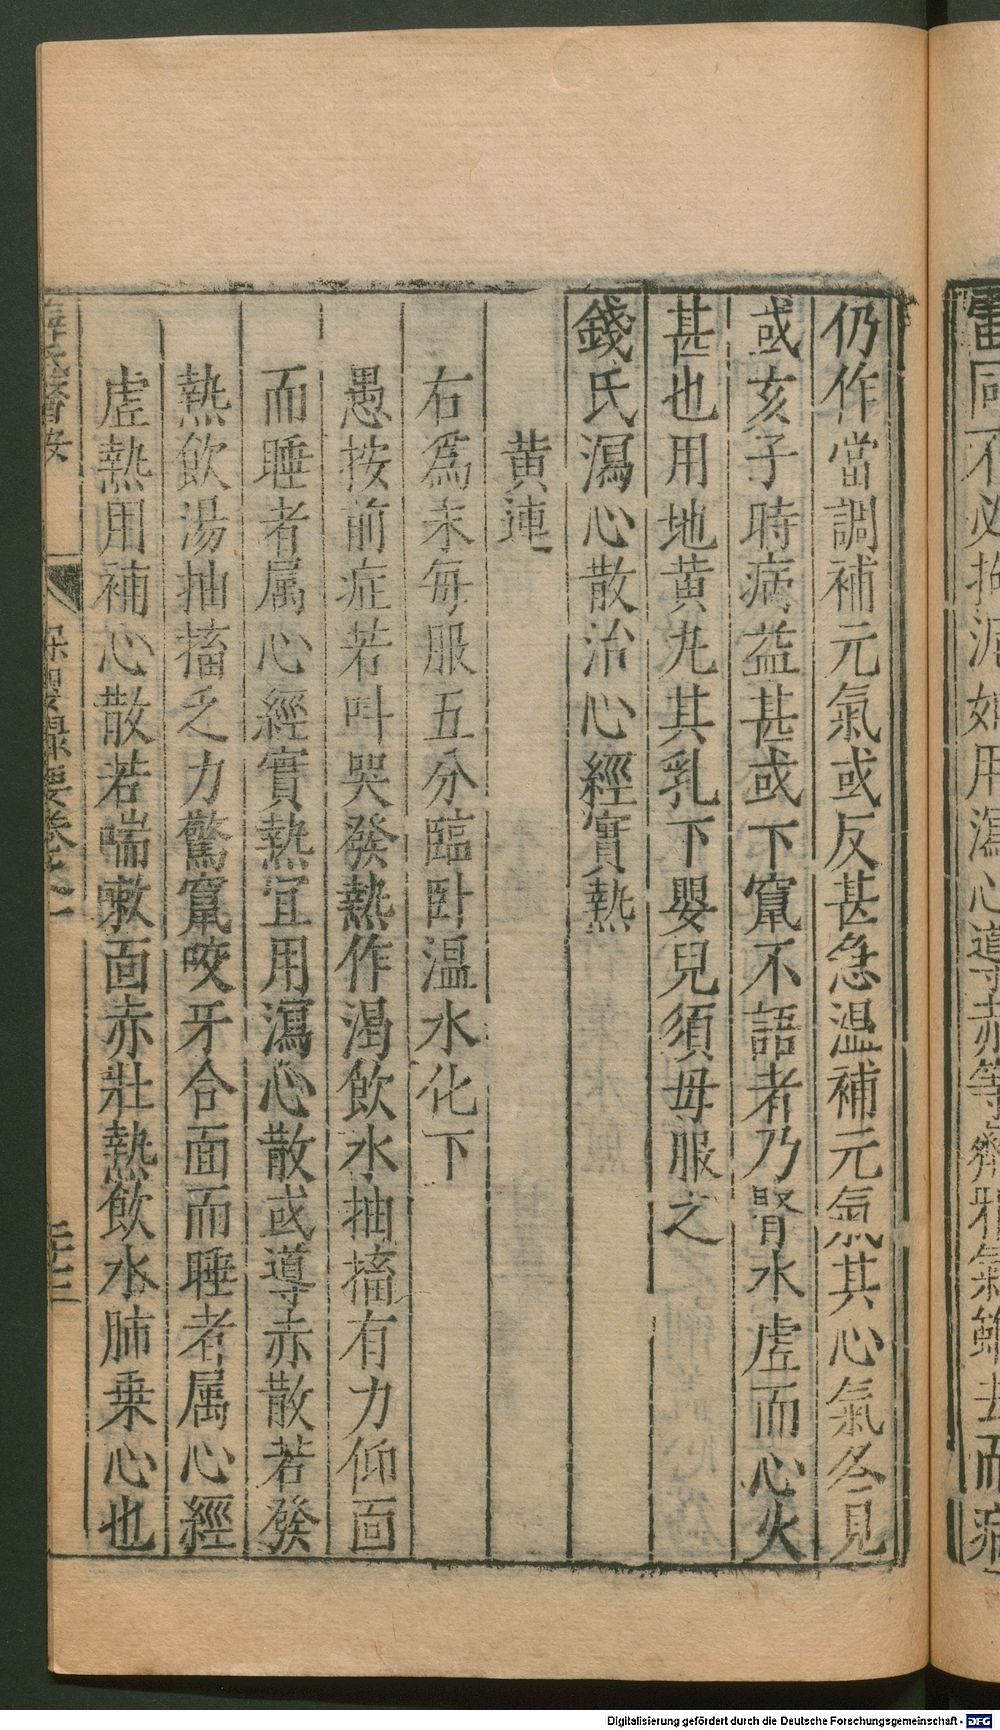 仍作當調補元氣或反甚急温補元氣其心氣冬見
或亥子時病益甚或下竄不語者乃腎水虚而心火
甚也用地黄丸其乳下嬰兒須母服之
錢氏瀉心散治心經實熱
黄連
右爲末每服五分臨卧温水化下
愚按前症若呌哭發熱作渴飲水抽搐有力仰面
而睡者属心經實熱宜用瀉心散或導赤散若發
熱飲湯抽搐乏力驚竄咬牙合面而睡者属心經
虚熱用補心散若喘嗽面赤壯熱飲水肺乗心也
薛氏醫按
保嬰撮要卷之一
Digitalisierung gefördert durch die Deutsche Forschungsgemeinschaft - DFG